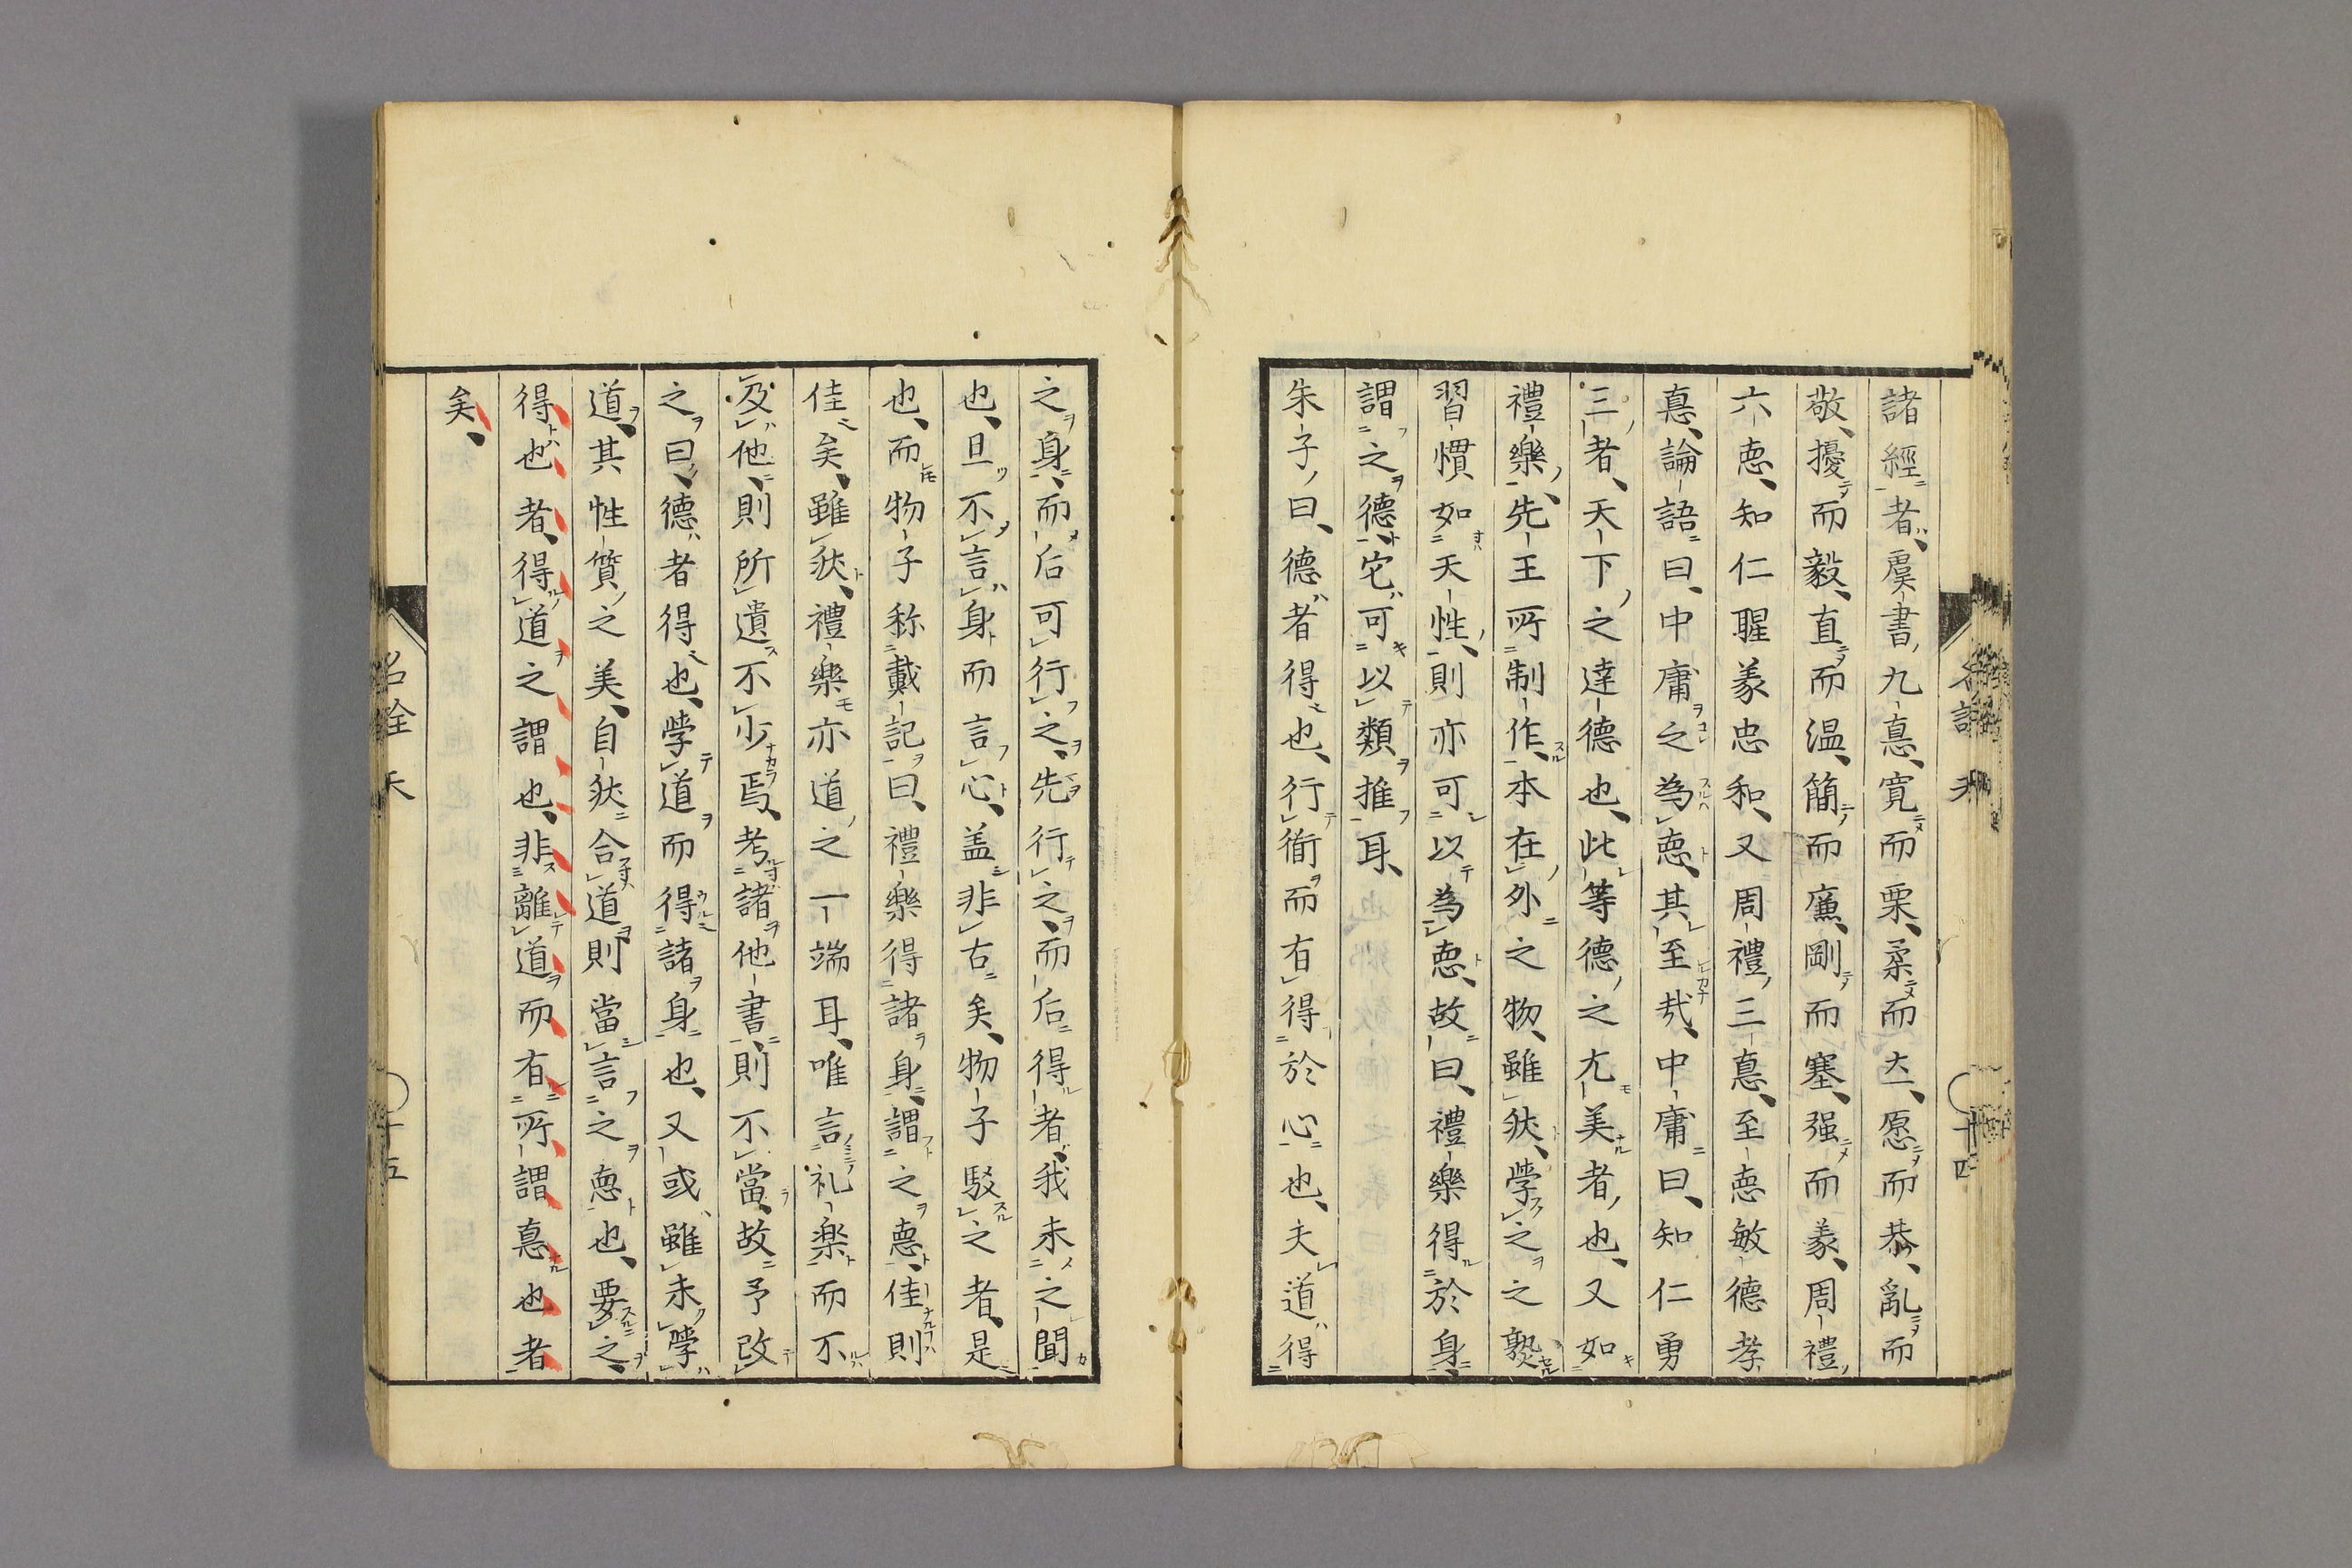 諸經者、虞書九悳、寛而栗、柔而立、愿而恭、亂而
敬、擾而毅、直而温、簡而廉、剛而塞、强而義、周禮
六悳、知仁聖義忠和、又周禮三悳、至悳敏德孝
悳、論語曰、中庸之為悳、其至哉、中庸曰、知仁勇
三者、天下之達德也、此等德之尤美者也、又如
禮樂、先王所制作、本在外之物、雖然、學之之熟
習慣如天性、則亦可以為悳、故曰、禮樂得於身、
謂之德、它可以類推耳、
朱子曰、德者得也、行衜而有得於心也、夫道得
之身、而后可行之、先行之、而后得者、我未之聞
也、且不言身而言心、盖非古矣、物子駁之者、是
也、而物子称戴記曰、禮樂得諸身、謂之悳、佳則
佳矣、雖然、禮樂亦道之一端耳、唯言礼樂而不
及他、則所遺不少焉、考諸他書、則不當、故予改
之曰、德者得也、學道而得諸身也、又或雖未學
道、其性質之美、自然合道則當言之悳也、要之、
得也者、得道之謂也、非離道而有所謂悳也者
矣、
名詮 天
十四
名詮 天
十五